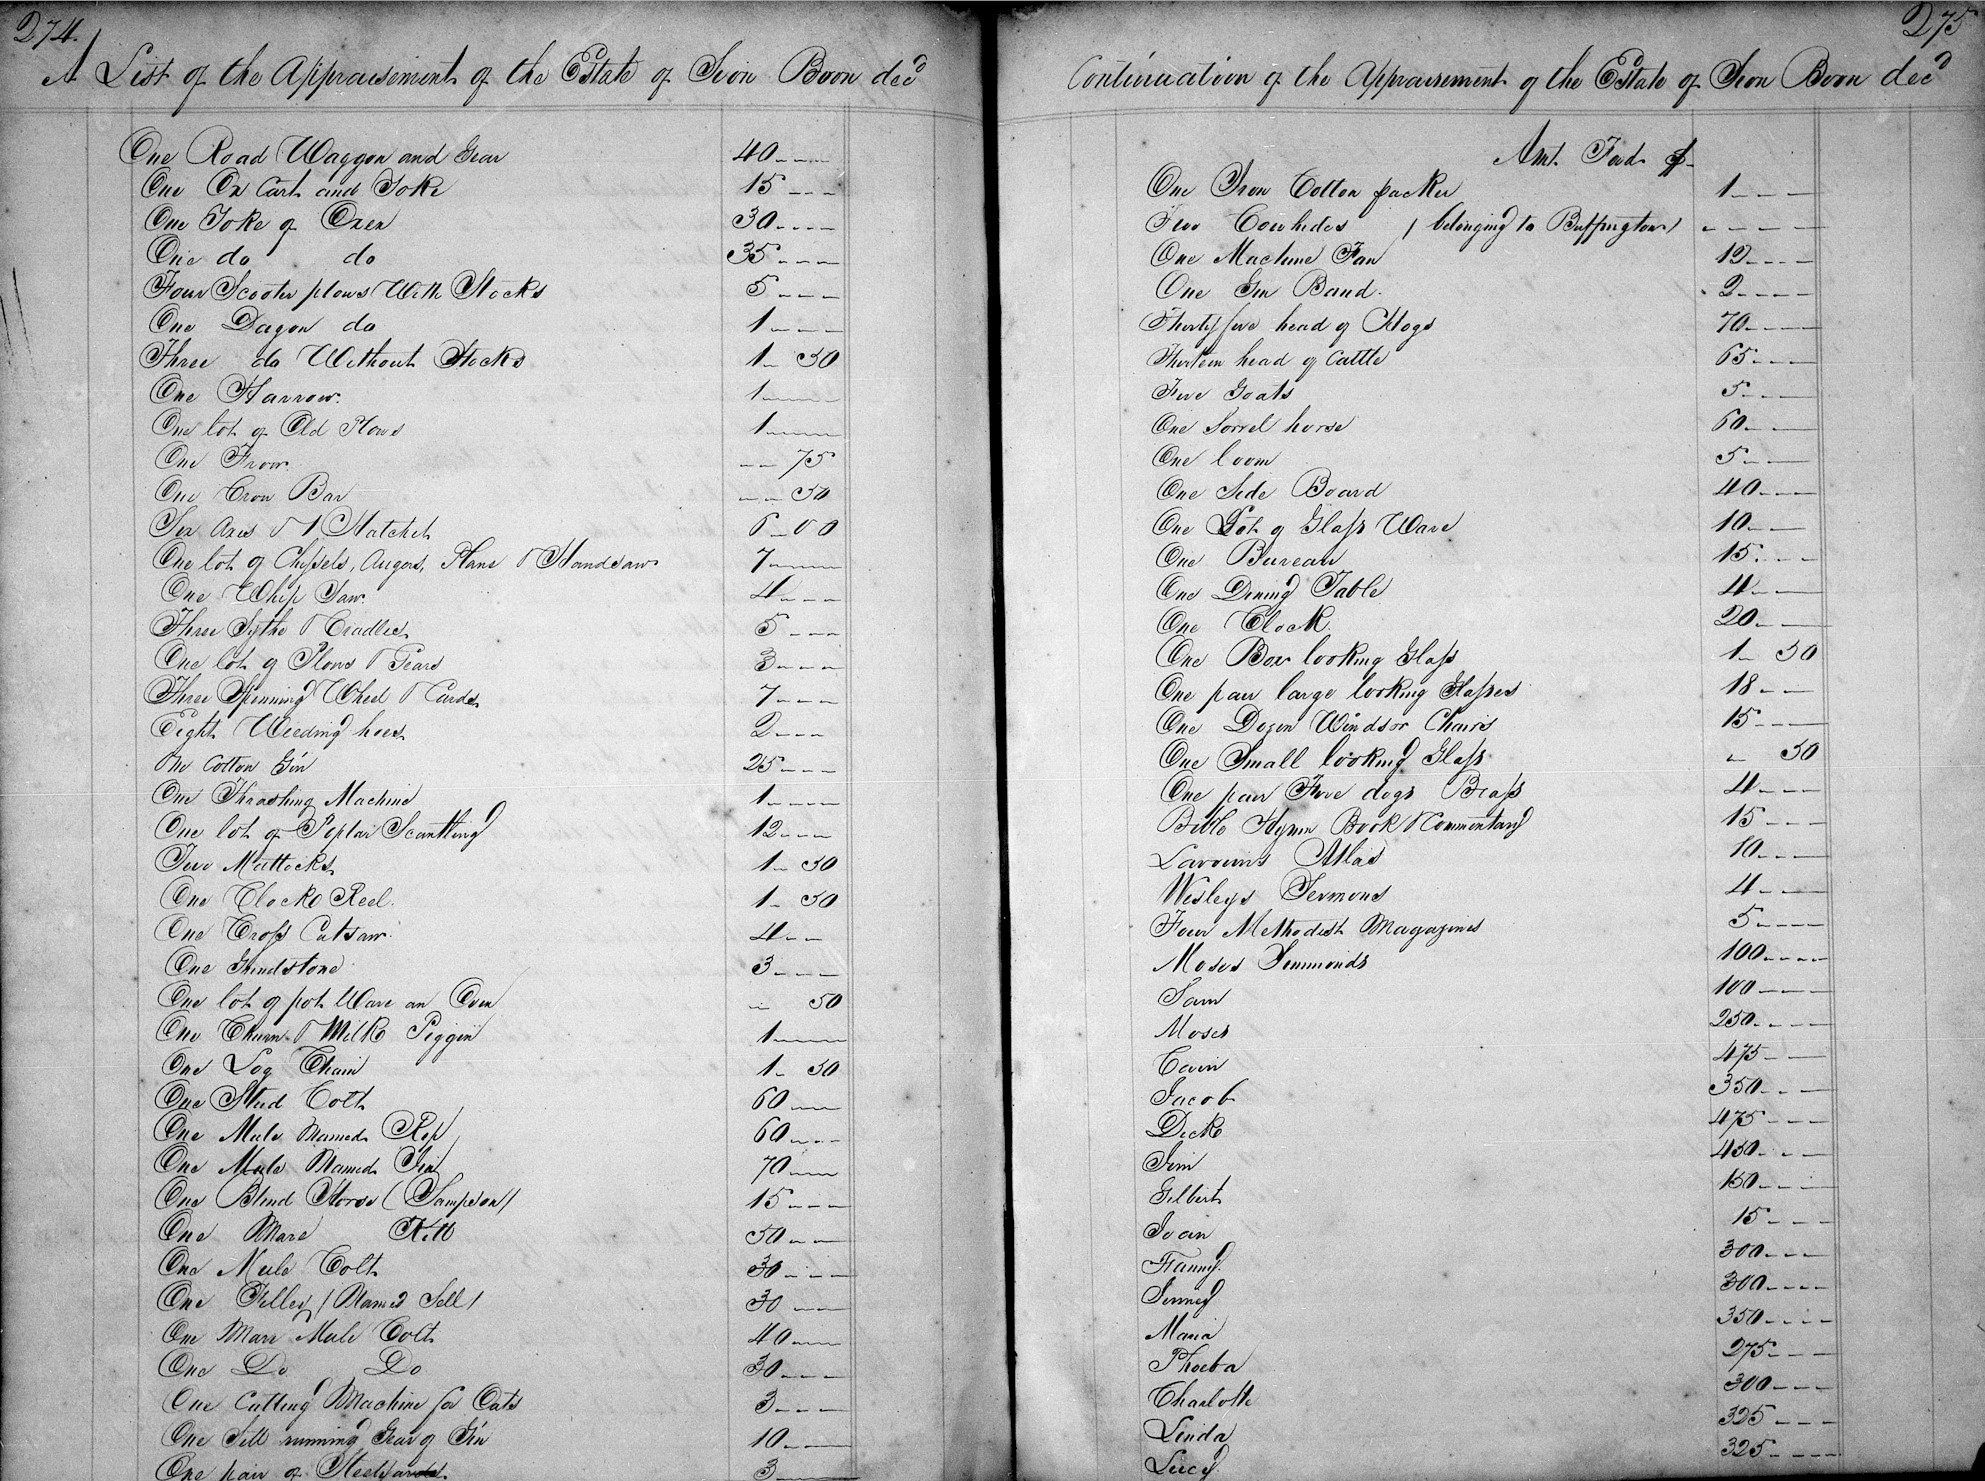 274.
A List of the Appraisement of the Estate of Sion Boon decd
One Road Waggon and Gear 40
One Ox Cart and Yoke 15
One Yoke of Oxen 30
One do do 35
Four Scooter plows With Stocks 5
One Dagon do 1
Three do Without Stocks 1 50
One Harrow. 1
One lot of Old Plows 1
One Frow. 75
One Crow Bar 50
Six Axes & 1 Hatchet 6 00
One lot of Chissels, Augers, Plane & Handsaw 7
One Whip Saw. 4
Three Sythe & Cradles 5
One lot of Plows & Gears 3
Three Spinning Wheel & Cards 7
Eight Weeding hoes 2
One Cotton Gin 25
One Thrashing Machine 1
One lot of Poplar Scantling 12
Two Mattocks 1 50
One Clocke Reel. 1 50
One Cross Cutsaw. 4
One Grindstone 3
One lot of pot Ware an Oven 50
One Churn & Milk Piggin 1
One Log Chain 1 50
One Stud Colt 60
One Mule Named 60
One Mule Named 70
One Blind Horse (Sampson) 15
One Mare Kitt 50
One Mule Colt 30
One Filley (Named Sell) 30
One Mare Mule Colt 40
One Do Do 30
One Cutting Machine for Oats 3
One Sett running Gear of Gin 10
One pair of 3
275
Continuation of the Appraisement of the Estate of Sion Boon decd
Amt. Ford. $
One Iron Cotton packer 1
Two Cowhides (belonging to Buffington)
One Machine Fan 12
One Gin Band. 2
Thirty five head of Hogs 70
Thirteen head of Cattle 65
Five Goats 5
One Sorrel horse 60
One loom 5
One Side Board 40
One Lot of Glass Ware 10
One Bureau 15
One Dining Table 4
One Clock 20
One Box looking Glass 1 50
One pair large looking Glasses 18
One Dozen Windsor Chairs 15
One Small looking Glass 50
One pair Fire dogs Brass 4
Bible Hymn Book & Commentary 15
Atlas 10
Wesleys Sermons 4
Four Methodist Magazines 5
Moses Simmonds 100
Sam 100
Moses 250
Cavin 475
Jacob 350
Dick 475
Jim 450
Gilbert 150
Joan 15
Fanny. 300
Jenney 300
Maria 350
Phoeba 275
Charlotte 300
Linda 325
Lucy 325